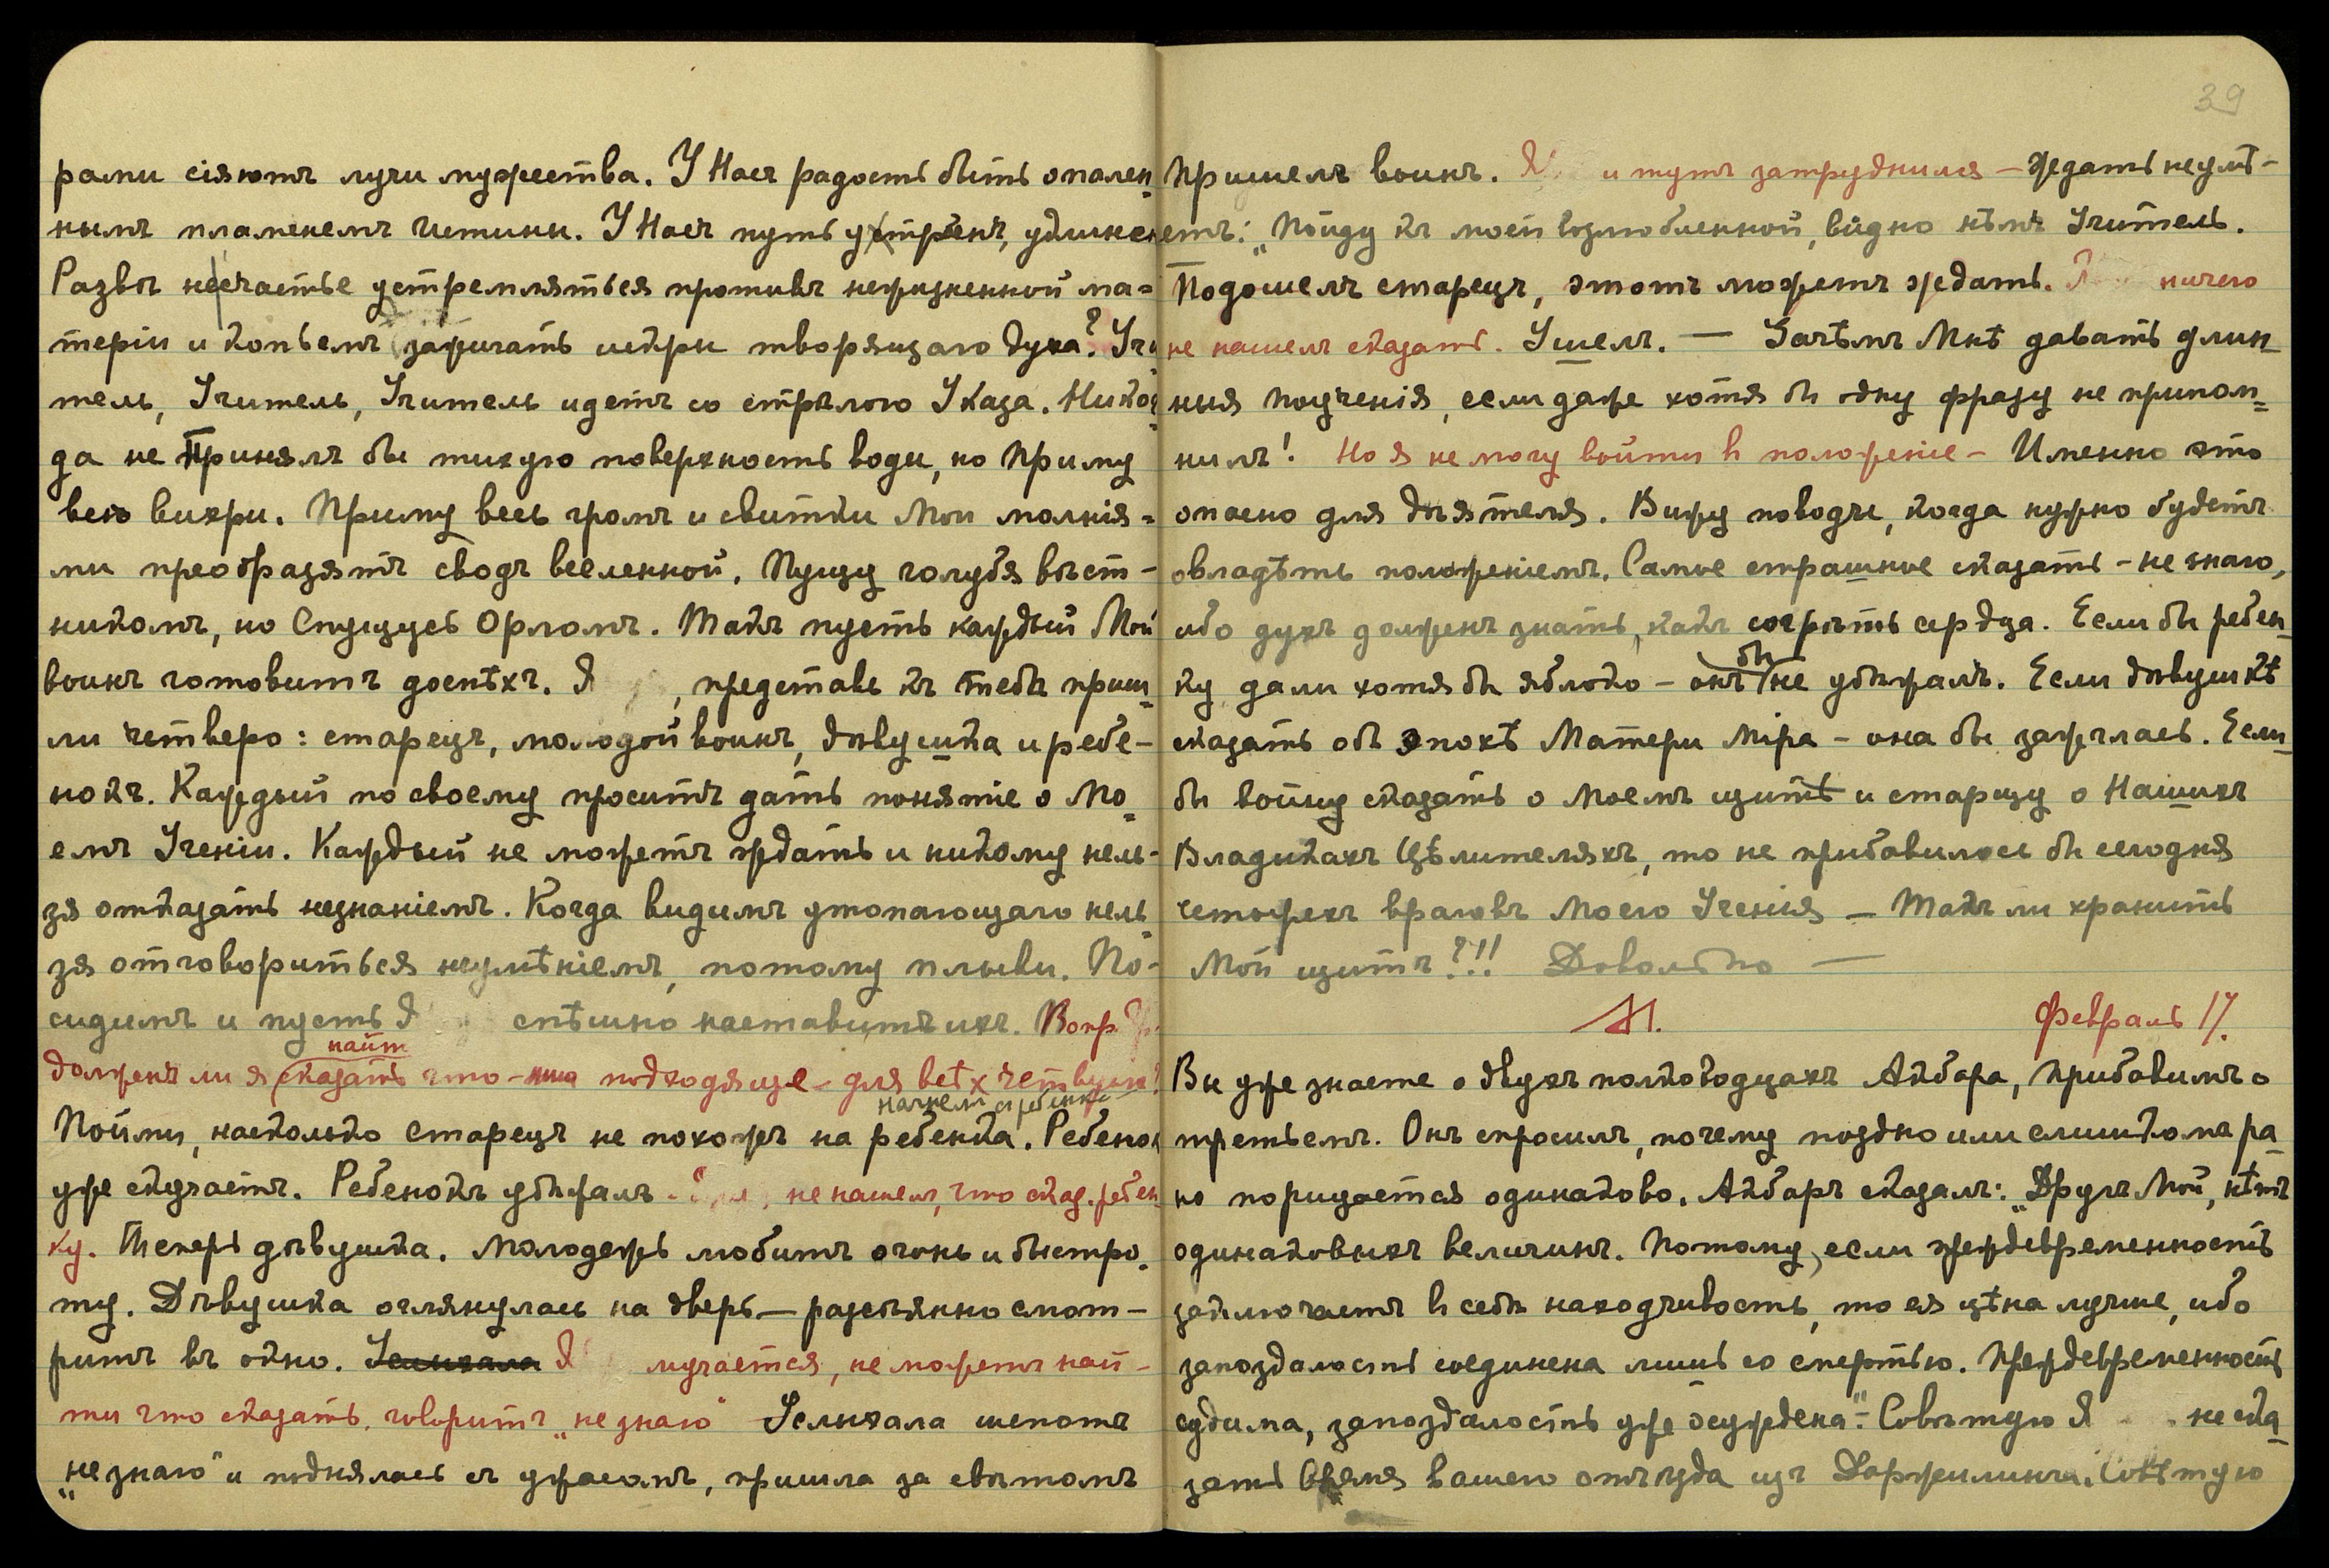 рами сіяютъ лучи мужества. У Насъ радость быть опален-
нымъ пламенемъ истины. У Насъ путь утроенъ, удлинен
Развѣ несчастье устремляться противъ нежизненной ма=
теріи и копьемъ зажигать искры творящаго духа? Учи
тель, Учитель, Учитель идетъ со стрѣлою Указа. Никог
да не Принялъ бы тихую поверхность воды, но Приму
всѣ вихри. Приму весь громъ и свитки Мои молнія=
ми преобразятъ сводъ вселенной. Пущу голубя вѣст-
никомъ, но Спущусь Орломъ. Такъ пусть каждый Мой
воинъ готовитъ доспѣхъ. Я , представь къ тебѣ приш=
ли четверо: старецъ, молодой воинъ, дѣвушка и ребе-
нокъ. Каждый по своему проситъ дать понятіе о Мо=
емъ Ученіи. Каждый не можетъ ждать и никому нель-
зя отказать незнаніемъ. Когда видимъ утопающаго нель
зя отговориться неумѣніемъ, потому плыви. По-
сидимъ и пусть Я спѣшно наставитъ ихъ. Вопр.
найт
долженъ ли я сказать что-ниб подходящее для всѣхъ четверыхъ?
начнемъ съ ребенка
Пойми, насколько старецъ не похожъ на ребенка. Ребенок
уже скучаетъ. Ребенокъ убѣжалъ. не нашелъ, что сказ. ребен
ку. Теперь дѣвушка. Молодежь любитъ огонь и быстро=
ту. Дѣвушка оглянулась на дверь — разсѣянно смот-
ритъ въ окно. Услыхала Я мучается, не можетъ най-
ти что сказать, говоритъ „не знаю" Услыхала шепотъ
„не знаю" и поднялась съ ужасомъ, пришла за свѣтомъ
39
Пришелъ воинъ. Я и тутъ затруднился — ждать не умѣ-
етъ: „Пойду къ моей возлюбленной, видно нѣмъ Учитель.
Подошелъ старецъ, этотъ можетъ ждать. Я ничего
не нашелъ сказать. Ушелъ. — Зачѣмъ Мнѣ давать длин=
ныя поученія, если даже хотя бы одну фразу не припом=
нилъ! Но я не могу войти в положеніе — Именно это
опасно для дѣятеля. Вижу поводы, когда нужно будетъ
овладѣть положеніемъ. Самое страшное сказать - не знаю,
ибо духъ долженъ знать, какъ согрѣть сердца. Если бы ребен=
бы
ку дали хотя бы яблоко — онъ не убѣжалъ. Если дѣвушкѣ
сказать объ эпохѣ Матери Міра — она бы зажглась. Если
бы воину сказать о Моемъ щитѣ и старцу о Нашихъ
Владыкахъ Цѣлителяхъ, то не прибавилось бы сегодня
четырехъ враговъ Моего Ученія — Такъ ли хранить
Мой щитъ?!! Довольно —
М. Февраль 17.
Вы уже знаете о двухъ полководцахъ Акбара, прибавимъ о
третьемъ. Онъ спросилъ, почему поздно или слишкомъ ра=
но порицается одинаково. Акбаръ сказалъ: „Другъ Мой, нѣтъ
одинаковыхъ величинъ. Потому, если преждевременность
заключаетъ в себѣ находчивость, то ея цѣна лучше, ибо
запоздалость соединена лишь со смертью. Преждевременность
судима, запоздалость уже осуждена". Совѣтую Я не ска=
зать время вашего отъѣзда изъ Даржилинга. Совѣтую